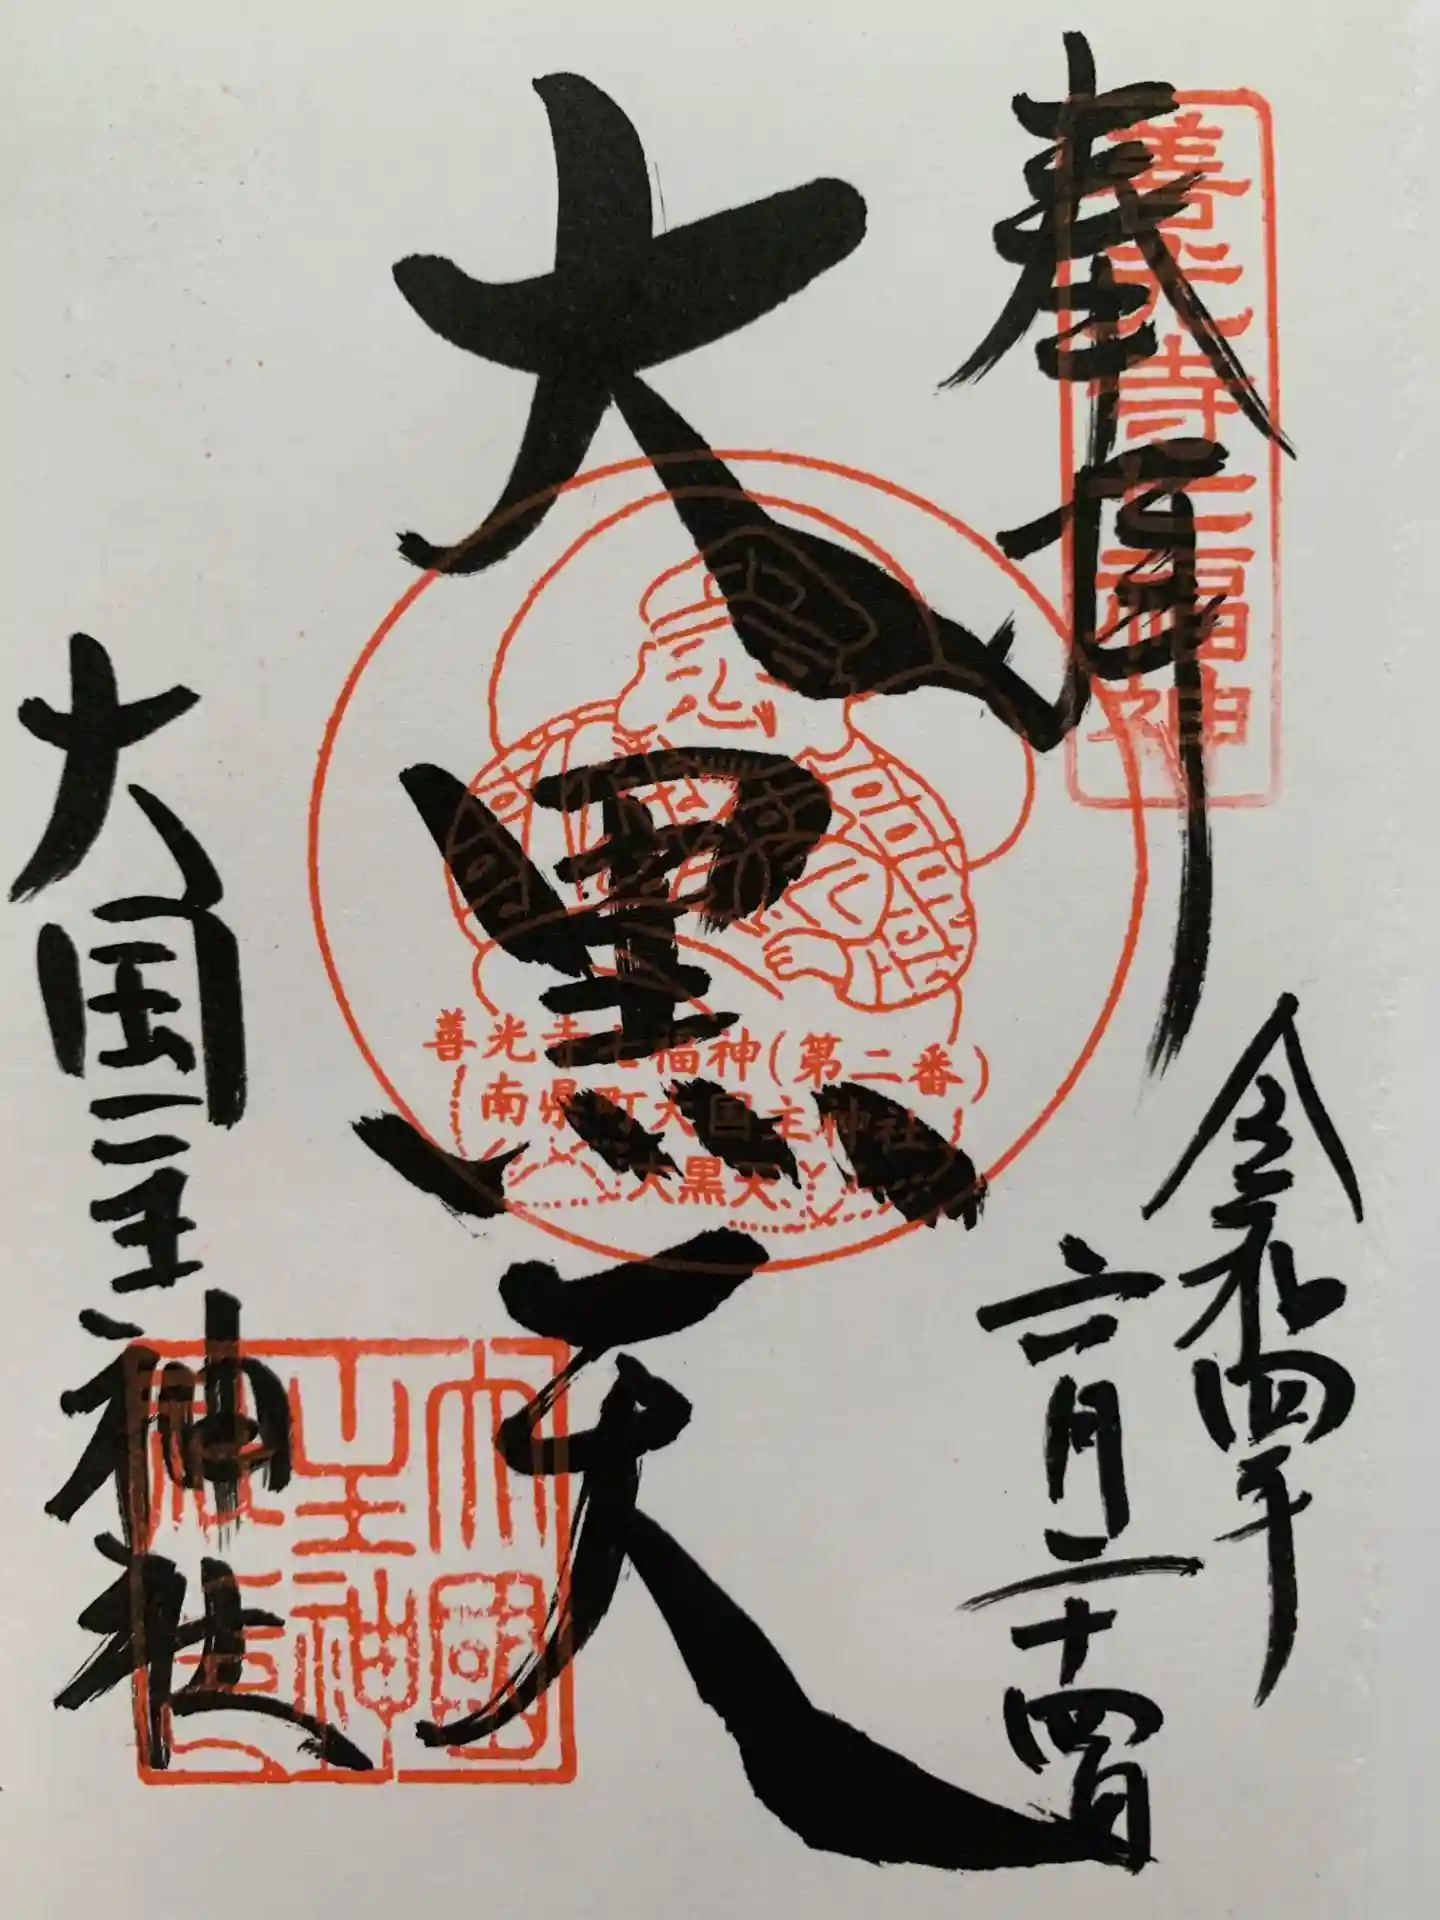 奉拝
善光寺七福神
令和四年
六月二十四日
大黒天
善光寺七福神(第二番)
南県町大国主神社
大黒天
大国主神社
大國
主神